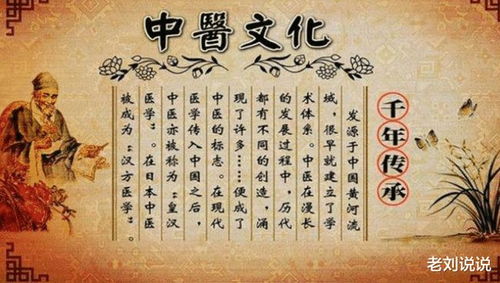 中醫文化
千年传承
发源于中国黄河流
域，很早就建立了学
术体系。中医在漫长
的发展过程中，历代
都有不同的创造，涌
现了许多……便成了
中医的标志。在现代
医学传入中国之后，
中医亦被称为“皇汉
医学”。在日本中医
被成为“汉方医学”。
老刘说说